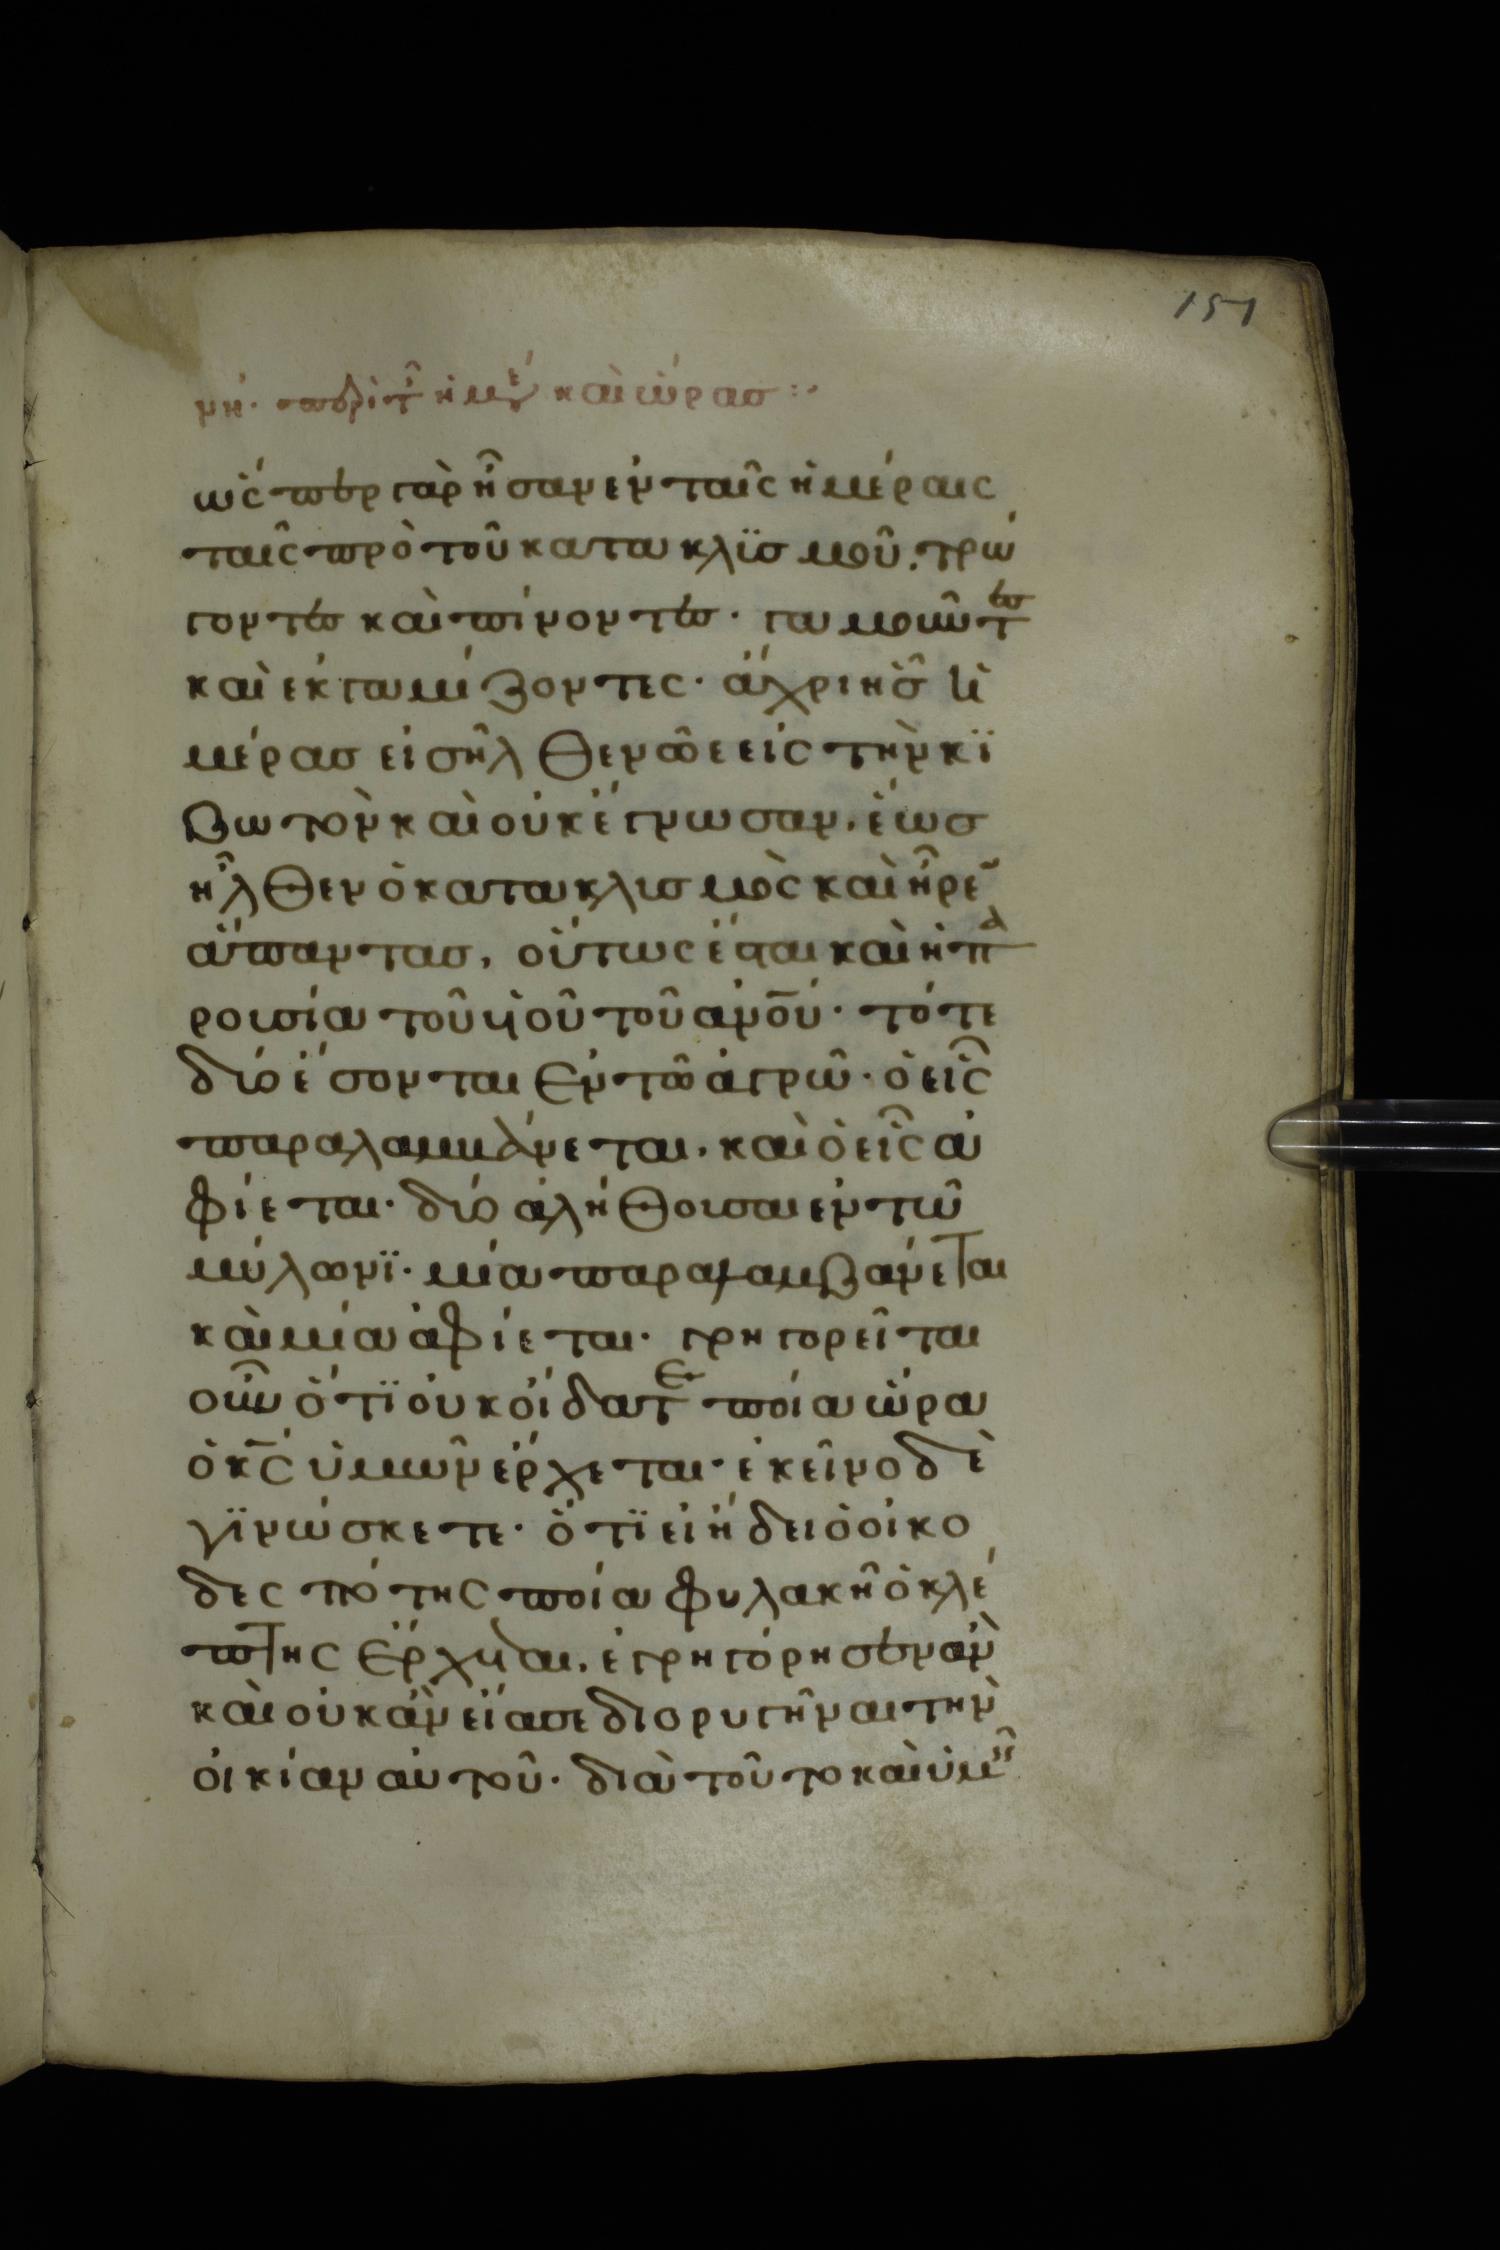 151
νη· περὶ τ̑ ἡμε καὶ ὥρασ :·
ὥσπερ γὰρ ἦσαν ἐν ταῖς ἡμέραις
ταῖς πρὸ τοῦ κατακλϊσμοῦ. τρώ
γοντεσ καὶ πίνοντεσ· γαμοῦντεσ
καὶ ἐκγαμίζοντες· ἄχρι ἧσ ἡ
μέρασ εἰσῆλθεν νῶε εἰς τὴν κϊ
βωτὸν καὶ οὐκ ἔγνωσαν. ἕωσ
ἦλθεν ὁ κατακλισμὸς καὶ ἦρε
ἅπαντασ, οὕτως ἔσται καὶ ἡ πα
ρουσία τοῦ ὑοῦ τοῦ ἀν̅ου· τότε
δύο ἔσονται ἐν τῶ ἀγρῶ· ὁ εἷς
παραλαμβάνεται. καὶ ὁ εἷς ἀ
φίεται· δύο ἀλήθουσαι ἐν τῶ
μύλωνϊ· μία παραλαμβάνεται
καὶ μία ἀφίεται· γρηγορεῖται
οὖν ὅτϊ οὐκ οἴδατε ποία ὥρα
ὁ κ̅ς ὑμῶν ἔρχεται· ἐκεῖνο δὲ
γϊνώσκετε· ὅτϊ εἰ ἤδει ὁ οἰκο
δεσπότης ποία φυλακῆ ὁ κλέ
πτης ἔρχεται. ἐγρηγόρησεν ἂν
καὶ οὐκ ἂν εἴασε διορυγῆναι τὴν
οἰκίαν αὐτοῦ· διὰ τοῦτο καὶ ὑμεῖς